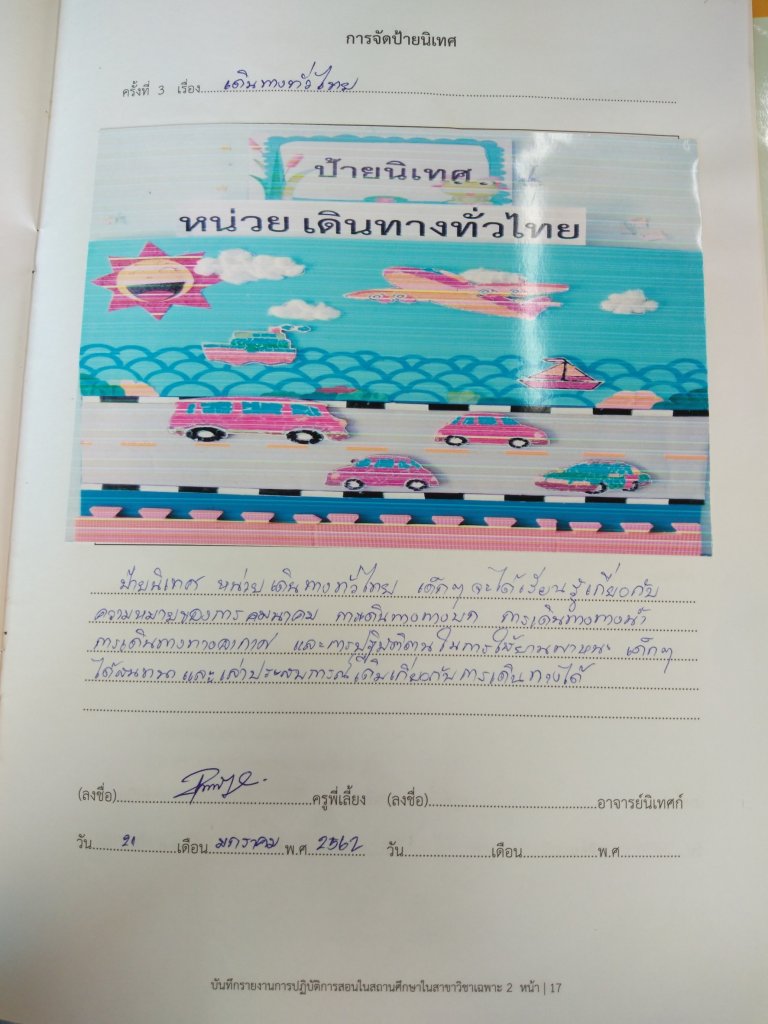 การจัดป้ายนิเทศ
ครั้งที่ 3 เรื่อง เดินทางทั่วไทย
ป้ายนิเทศ
หน่วย เดินทางทั่วไทย
ป้ายนิเทศ หน่วย เดินทางทั่วไทย เด็กๆ จะได้เรียนรู้เกี่ยวกับ
ความหมายของการคมนาคม การเดินทางทางบก การเดินทางทางน้ำ
การเดินทางทางอากาศ และการปฏิบัติตนในการใช้ยานพาหนะ เด็กๆ
ได้สนทนา และเล่าประสบการณ์เดิมเกี่ยวกับการเดินทางได้
(ลงชื่อ) ครูพี่เลี้ยง (ลงชื่อ) อาจารย์นิเทศก์
วัน 21 เดือน มกราคม พ.ศ 2562 วัน เดือน พ.ศ
บันทึกรายงานการปฏิบัติการสอนในสถานศึกษาในสาขาวิชาเฉพาะ 2 หน้า | 17